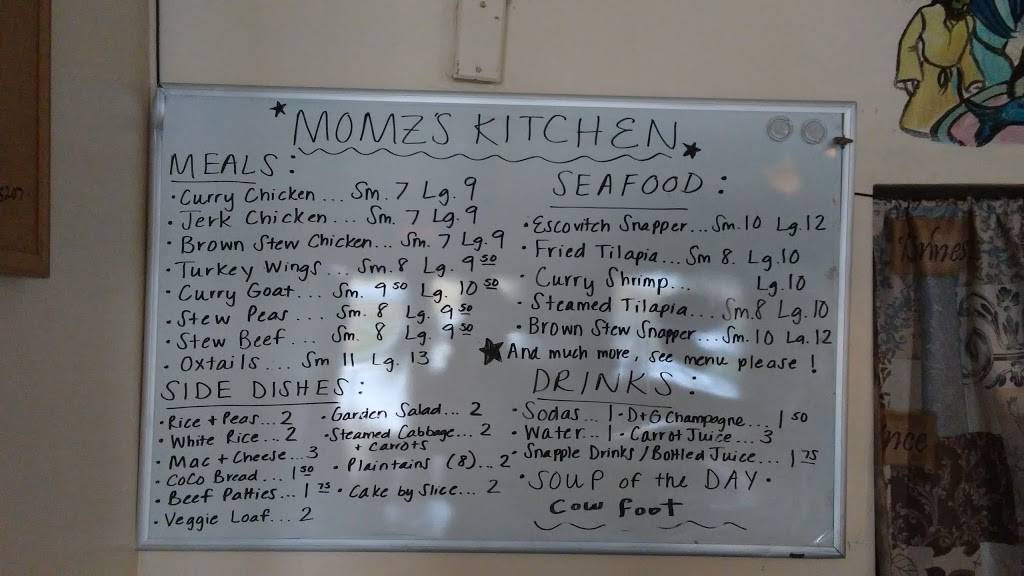 MOMZS KITCHEN
MEALS:
• Curry Chicken... Sm. 7 Lg. 9
• Jerk Chicken... Sm. 7 Lg. 9
• Brown Stew Chicken... Sm. 7 Lg. 9
• Turkey Wings... Sm. 8 Lg. 9 50
• Curry Goat... Sm. 9 50 Lg. 10 50
• Stew Peas... Sm. 8 Lg. 9 50
• Stew Beef... Sm. 8 Lg. 9 50
• Oxtails.... Sm 11 Lg. 13
SEAFOOD:
• Escovitch Snapper... Sm. 10 Lg. 12
• Fried Tilapia... Sm 8. Lg. 10
• Curry Shrimp... Lg. 10
• Steamed Tilapia.... Sm. 8 Lg. 10
• Brown Stew Snapper... Sm. 10 Lg. 12
And much more, see menu please!
SIDE DISHES:
• Rice + Peas... 2
• White Rice... 2
• Mac + Cheese... 3
• Coco Bread... 1 50
• Beef Patties... 1 75
• Veggie Loaf... 2
• Garden Salad... 2
• Steamed Cabbage... 2
+ Carrots
• Plaintains (8)... 2
• Cake by Slice... 2
DRINKS:
• Sodas... 1 • D+G Champagne... 1 50
• Water... 1 • Carrot Juice... 3
• Snapple Drinks / Bottled Juice... 1 75
• SOUP of the DAY •
Cow Foot